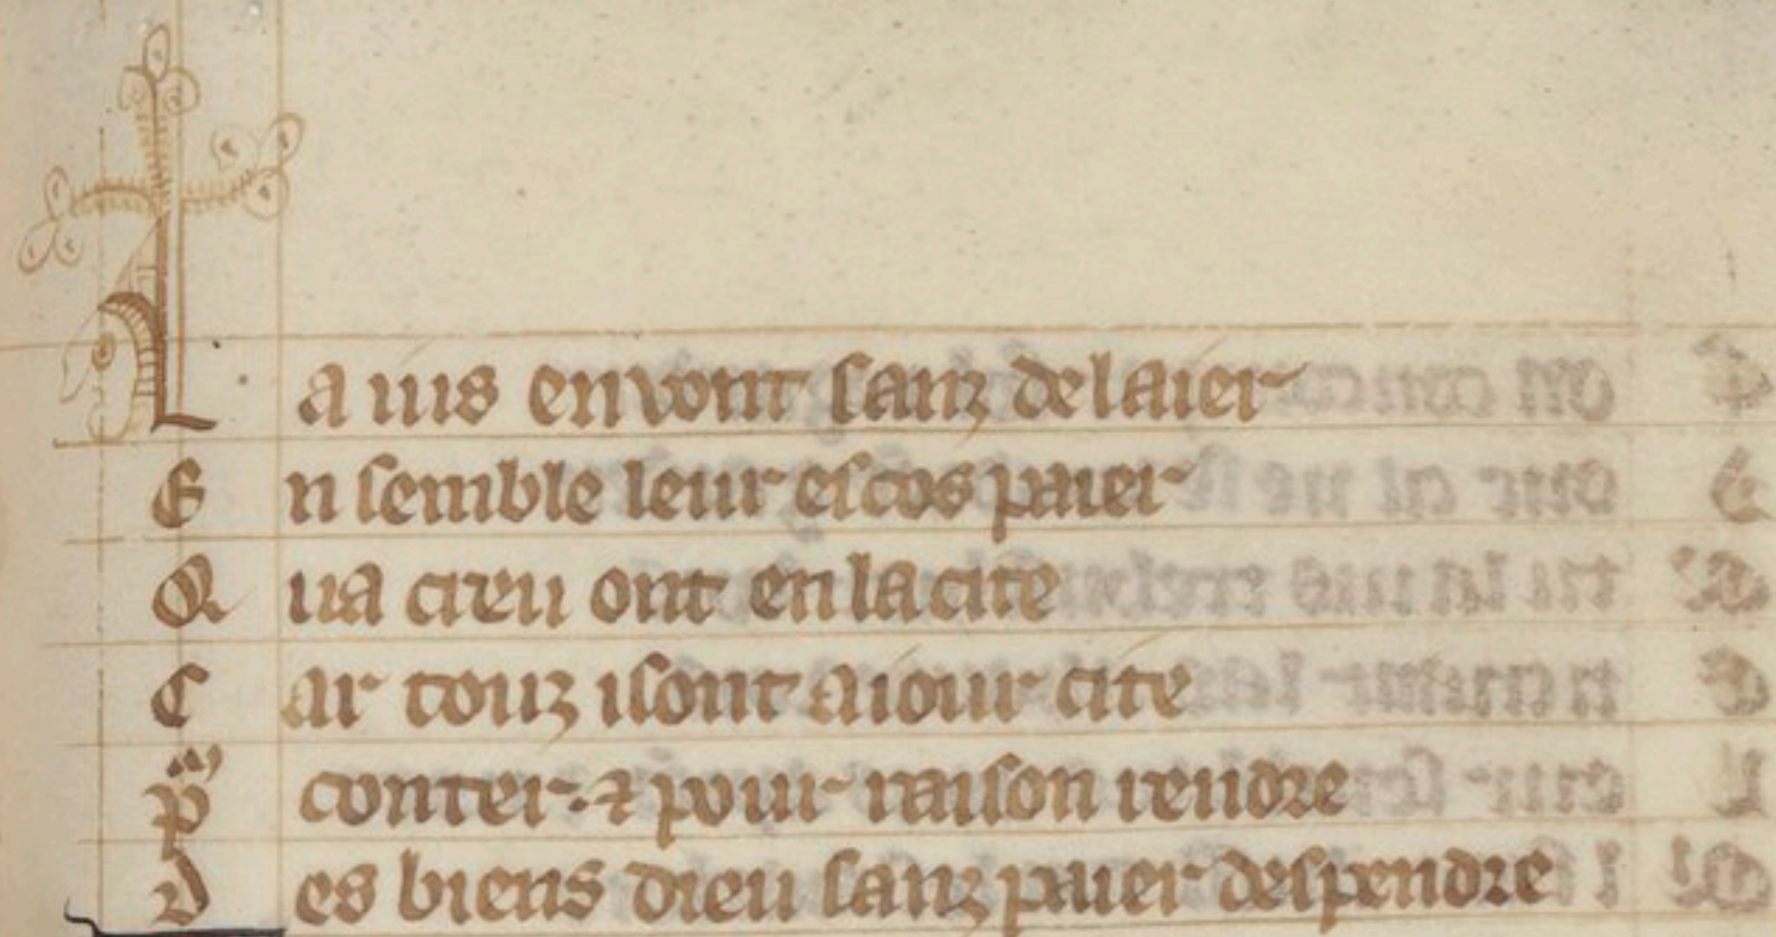 La uis en vont sanz delaier
En semble leur escos paier
Qua creu ont en la cite
Car touz i sont aiour cite
P conter. ⁊ pour raison rendre
Des biens dieu sanz paier despendre